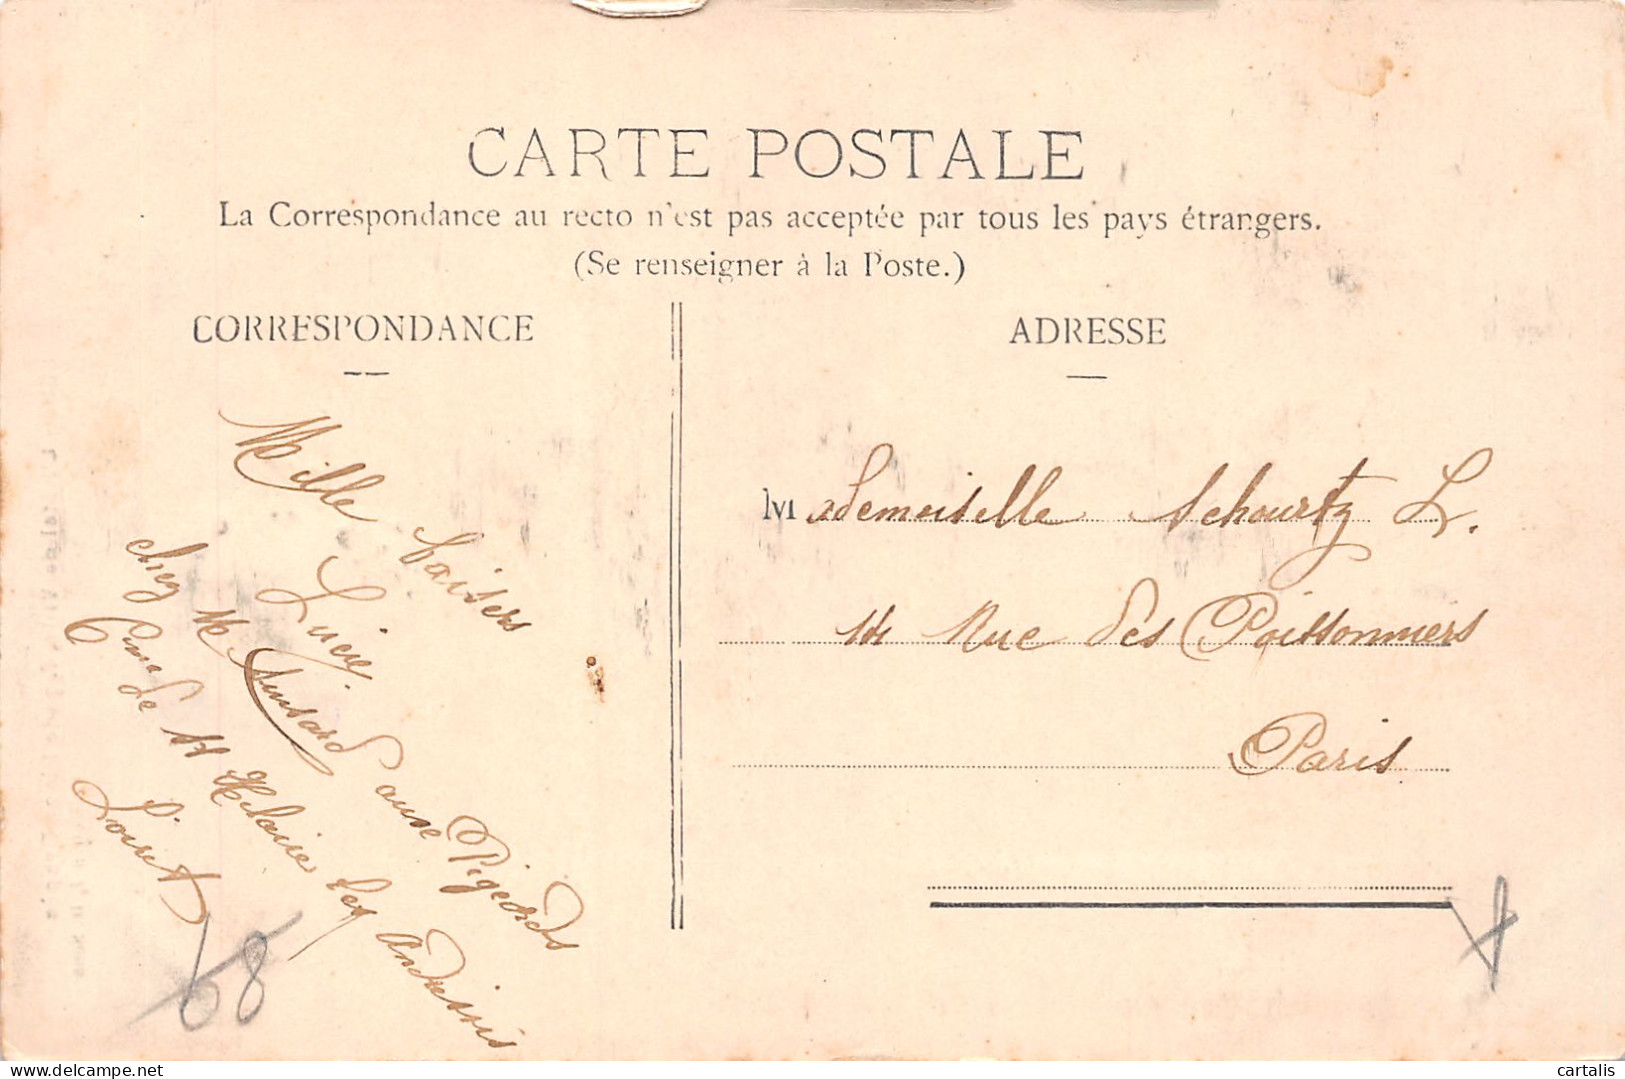 CARTE POSTALE
La Correspondance au recto n'est pas acceptée par tous les pays étrangers.
(Se renseigner à la Poste.)
CORRESPONDANCE
Mille baisers
Lucie
chez M aux Pigeards
Cne de St Hilaire les Andressis
Loiret
68
ADRESSE
Mademoiselle Schourtz L.
14 Rue des Poissonniers
Paris
delcampe.net
cartalis